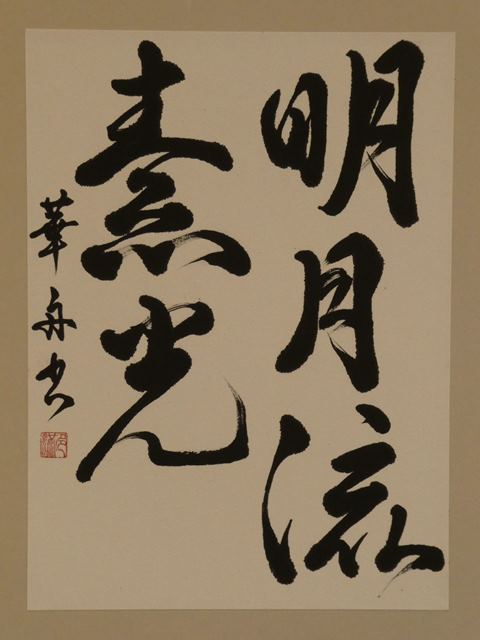 明月流
素光
華舟書